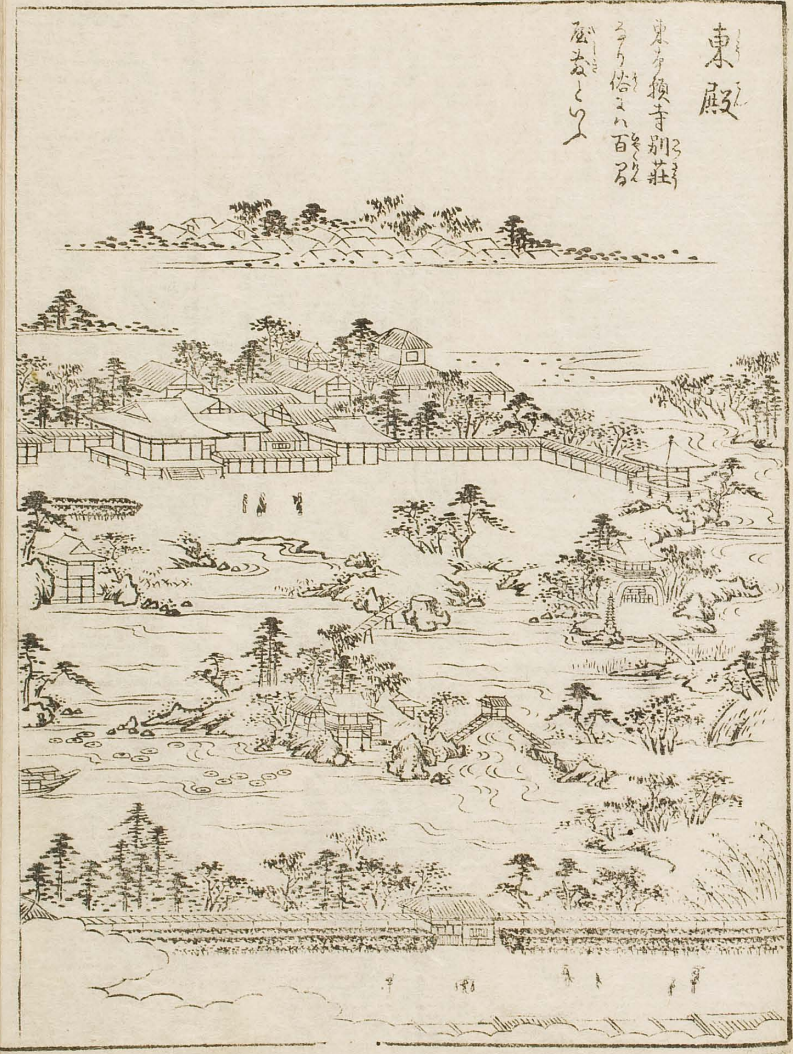 東殿
東本願寺別荘
なり俗には百間
屋敷といふ